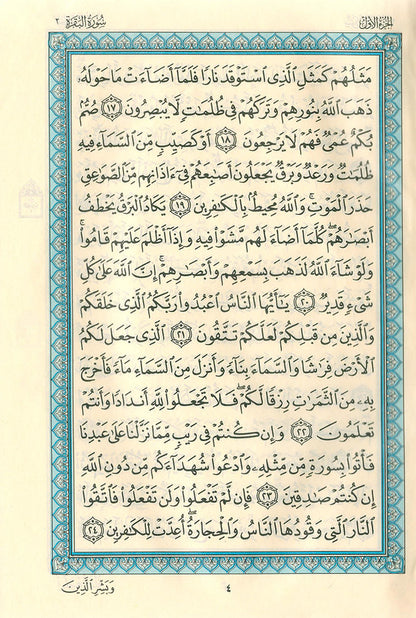 الجزء الأول
سورة البقرة ٢
مَثَلُهُمْ كَمَثَلِ ٱلَّذِى ٱسْتَوْقَدَ نَارًا فَلَمَّآ أَضَآءَتْ مَا حَوْلَهُۥ
ذَهَبَ ٱللَّهُ بِنُورِهِمْ وَتَرَكَهُمْ فِى ظُلُمَٰتٍ لَّا يُبْصِرُونَ ١٧ صُمٌّۢ
بُكْمٌ عُمْىٌ فَهُمْ لَا يَرْجِعُونَ ١٨ أَوْ كَصَيِّبٍ مِّنَ ٱلسَّمَآءِ فِيهِ
ظُلُمَٰتٌ وَرَعْدٌ وَبَرْقٌ يَجْعَلُونَ أَصَٰبِعَهُمْ فِىٓ ءَاذَانِهِم مِّنَ ٱلصَّوَٰعِقِ
حَذَرَ ٱلْمَوْتِ ۚ وَٱللَّهُ مُحِيطٌۢ بِٱلْكَٰفِرِينَ ١٩ يَكَادُ ٱلْبَرْقُ يَخْطَفُ
أَبْصَٰرَهُمْ ۖ كُلَّمَآ أَضَآءَ لَهُم مَّشَوْا۟ فِيهِ وَإِذَآ أَظْلَمَ عَلَيْهِمْ قَامُوا۟ ۚ
وَلَوْ شَآءَ ٱللَّهُ لَذَهَبَ بِسَمْعِهِمْ وَأَبْصَٰرِهِمْ ۚ إِنَّ ٱللَّهَ عَلَىٰ كُلِّ
شَىْءٍ قَدِيرٌ ٢٠ يَٰٓأَيُّهَا ٱلنَّاسُ ٱعْبُدُوا۟ رَبَّكُمُ ٱلَّذِى خَلَقَكُمْ
وَٱلَّذِينَ مِن قَبْلِكُمْ لَعَلَّكُمْ تَتَّقُونَ ٢١ ٱلَّذِى جَعَلَ لَكُمُ
ٱلْأَرْضَ فِرَٰشًا وَٱلسَّمَآءَ بِنَآءً وَأَنزَلَ مِنَ ٱلسَّمَآءِ مَآءً فَأَخْرَجَ
بِهِۦ مِنَ ٱلثَّمَرَٰتِ رِزْقًا لَّكُمْ ۖ فَلَا تَجْعَلُوا۟ لِلَّهِ أَندَادًا وَأَنتُمْ
تَعْلَمُونَ ٢٢ وَإِن كُنتُمْ فِى رَيْبٍ مِّمَّا نَزَّلْنَا عَلَىٰ عَبْدِنَا
فَأْتُوا۟ بِسُورَةٍ مِّن مِّثْلِهِۦ وَٱدْعُوا۟ شُهَدَآءَكُم مِّن دُونِ ٱللَّهِ
إِن كُنتُمْ صَٰدِقِينَ ٢٣ فَإِن لَّمْ تَفْعَلُوا۟ وَلَن تَفْعَلُوا۟ فَٱتَّقُوا۟
ٱلنَّارَ ٱلَّتِى وَقُودُهَا ٱلنَّاسُ وَٱلْحِجَارَةُ ۖ أُعِدَّتْ لِلْكَٰفِرِينَ ٢٤
٤
وَبَشِّرِ ٱلَّذِينَ